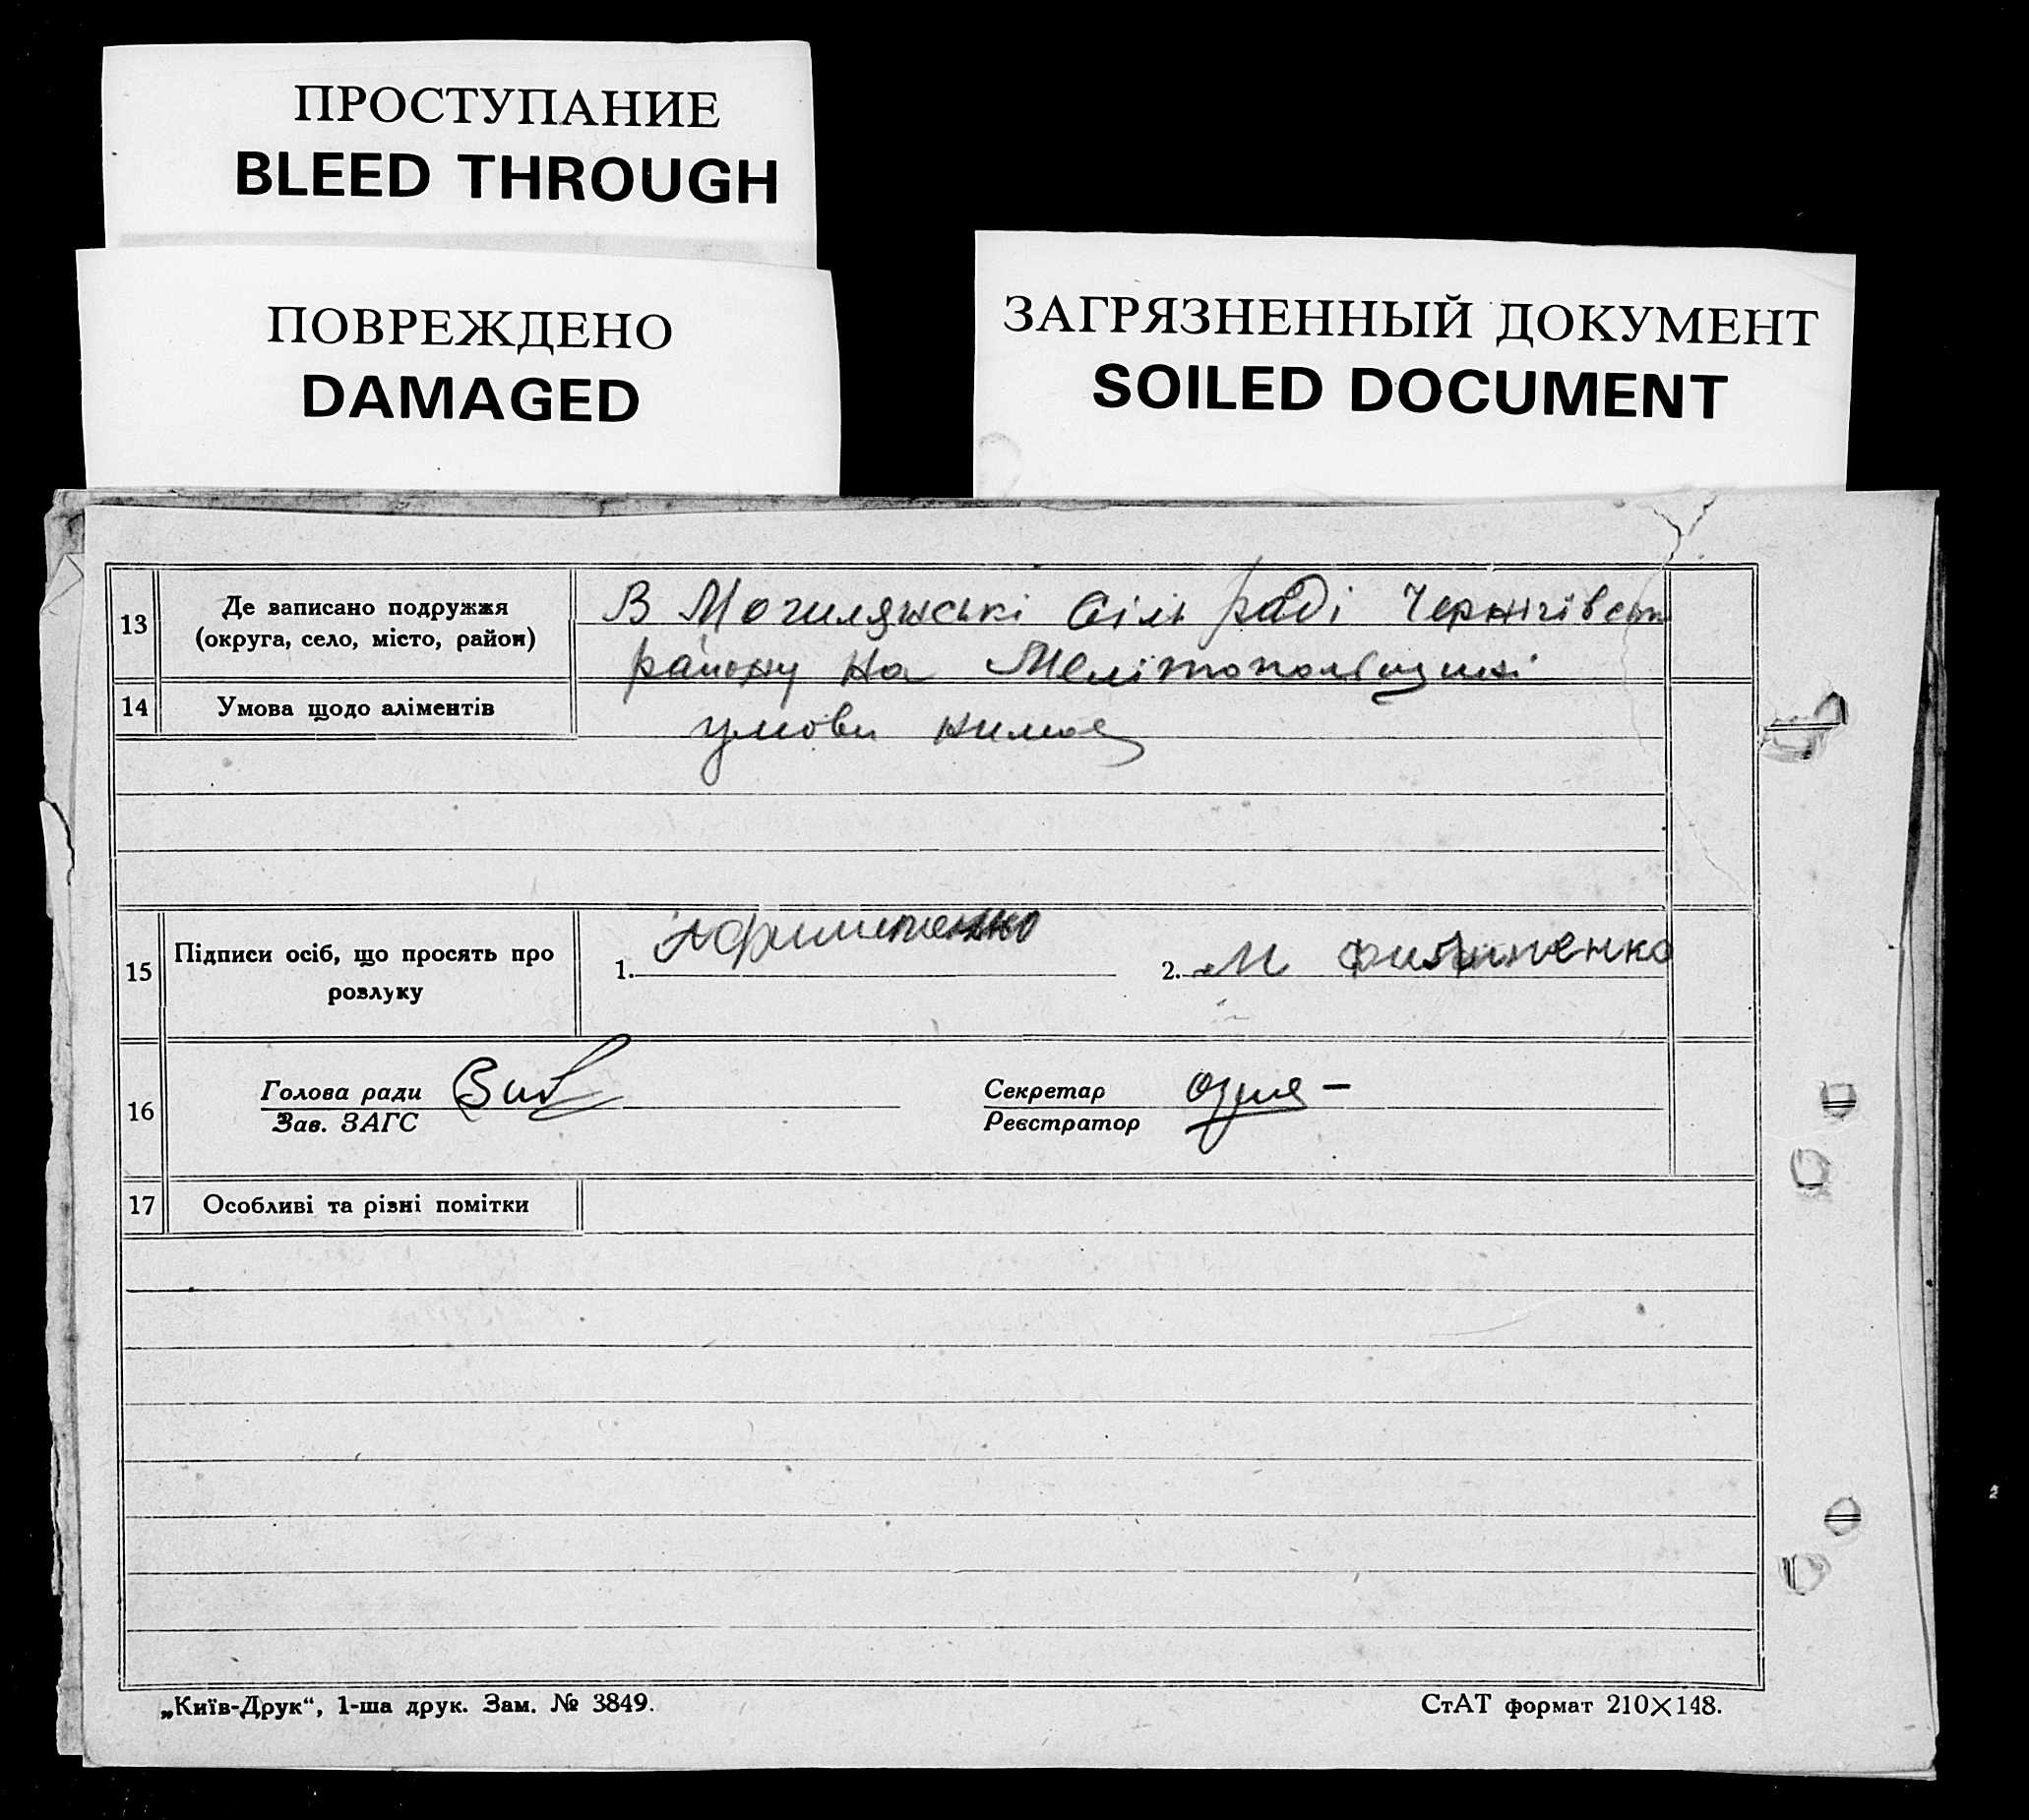 ПРОСТУПАНИЕ
BLEED THROUGH
ПОВРЕЖДЕНО
DAMAGED
ЗАГРЯЗНЕННЫЙ ДОКУМЕНТ
SOILED DOCUMENT
13 Де записано подружжя
(округа, село, місто, район)
В Могилянські Сіль раді Чернігівськ
району на Мелітопольщині
14 Умова щодо аліментів
умови
15 Підписи осіб, що просять про
розлуку
1.
2. М Филипенко
16 Голова ради
Зав. ЗАГС
Секретар
Реєстратор
17 Особливі та різні помітки
„Київ-Друк“, 1-ша друк. Зам. № 3849.
СтАТ формат 210×148.